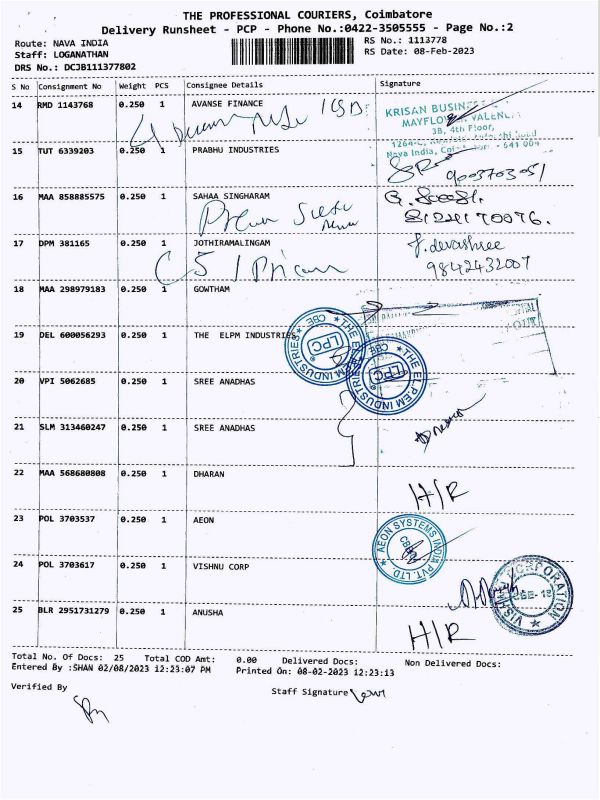 THE PROFESSIONAL COURIERS, Coimbatore
Delivery Runsheet - PCP - Phone No.:0422-3505555 - Page No.:2
Route: NAVA INDIA RS No.: 1113778
Staff: LOGANATHAN RS Date: 08-Feb-2023
DRS No.: DCJB111377802
S No Consignment No Weight PCS Consignee Details Signature
14 RMD 1143768 0.250 1 AVANSE FINANCE
KRISAN BUSINE
MAYFLOWER VALEN
3B, 4th Floor,
Nava India, 641 004
15 TUT 6339203 0.250 1 PRABHU INDUSTRIES
9003703051
16 MAA 858885575 0.250 1 SAHAA SINGHARAM
17 DPM 381165 0.250 1 JOTHIRAMALINGAM
J. devashree
9842432007
18 MAA 298979183 0.250 1 GOWTHAM
19 DEL 600056293 0.250 1 THE ELPM INDUSTRIES
THE EL.PE.M INDUSTRIES
CBE
LPC
THE EL.PE.M INDUSTRIES
CBE
LPC
20 VPI 5062685 0.250 1 SREE ANADHAS
21 SLM 313460247 0.250 1 SREE ANADHAS
22 MAA 568680808 0.250 1 DHARAN
H/R
23 POL 3703537 0.250 1 AEON
AEON SYSTEMS INDIA PVT. LTD.
24 POL 3703617 0.250 1 VISHNU CORP
VISHNU CORPORATION
25 BLR 2951731279 0.250 1 ANUSHA
H/R
Total No. Of Docs: 25 Total COD Amt: 0.00 Delivered Docs: Non Delivered Docs:
Entered By :SHAN 02/08/2023 12:23:07 PM Printed On: 08-02-2023 12:23:13
Verified By Staff Signature